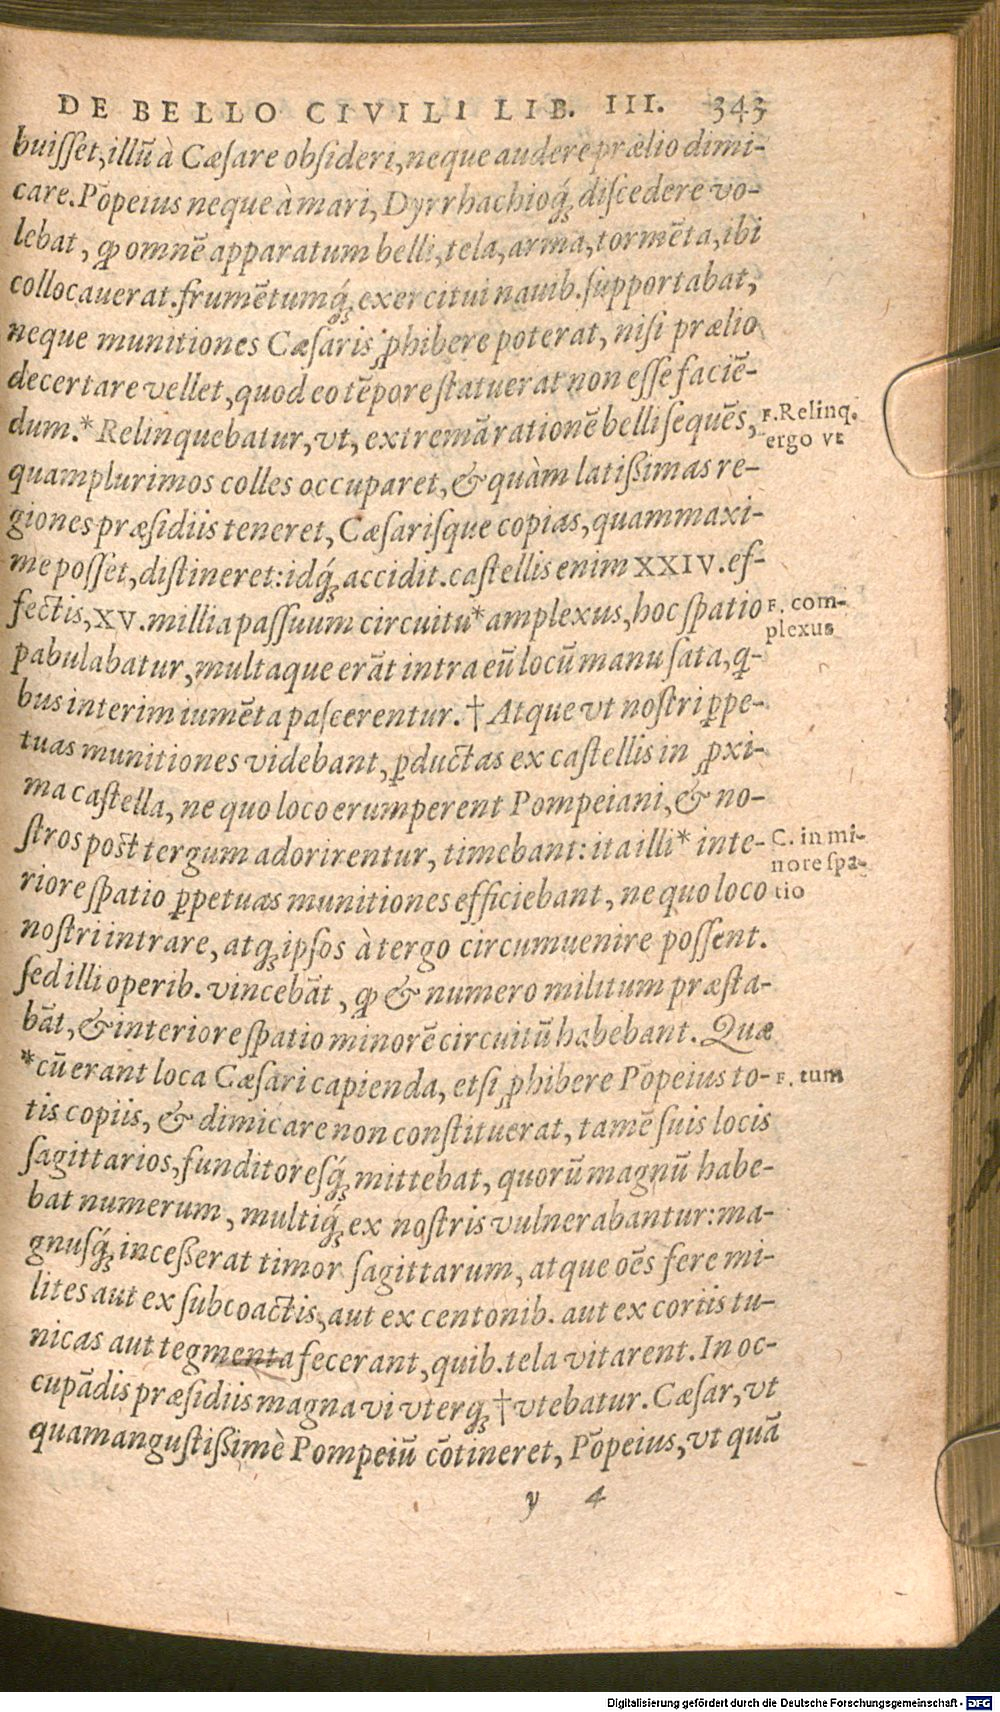 DE BELLO CIVILI LIB. III. 343
buisset, illũ à Cæsare obsideri, neque audere prælio dimi-
care. Põpeius neque à mari, Dyrrhachioq́; discedere vo-
lebat, ꝙ omnẽ apparatum belli, tela, arma, tormẽta, ibi
collocauerat. frumẽtumq́; exercitui nauib. supportabat,
neque munitiones Cæsaris ꝓhibere poterat, nisi prælio
decertare vellet, quod eo tẽpore statuerat non esse faciẽ-
dum.* Relinquebatur, vt, extremã rationẽ belli sequẽs,
quamplurimos colles occuparet, & quàm latißimas re-
giones præsidiis teneret, Cæsarisque copias, quammaxi-
me posset, distineret: idq́; accidit. castellis enim XXIV. ef-
fectis, XV. millia passuum circuitu* amplexus, hoc spatio
pabulabatur, multaque erãt intra eũ locũ manu sata, q-
bus interim iumẽta pascerentur. † Atque vt nostri ꝑpe-
tuas munitiones videbant, ꝑductas ex castellis in ꝓxi-
ma castella, ne quo loco erumperent Pompeiani, & no-
stros post tergum adorirentur, timebant: ita illi* inte-
riore spatio ꝑpetuas munitiones efficiebant, ne quo loco
nostri intrare, atq; ipsos à tergo circumuenire possent.
sed illi operib. vincebãt, ꝙ & numero militum præsta-
bãt, & interiore spatio minorẽ circuitũ habebant. Quæ
*cũ erant loca Cæsari capienda, etsi ꝓhibere Põpeius to-
tis copiis, & dimicare non constituerat, tamẽ suis locis
sagittarios, funditoresq́; mittebat, quorũ magnũ habe-
bat numerum, multiq́; ex nostris vulnerabantur: ma-
gnusq́; inceßerat timor sagittarum, atque oẽs fere mi-
lites aut ex subcoactis, aut ex centonib. aut ex coriis tu-
nicas aut tegmenta fecerant, quib. tela vitarent. In oc-
cupãdis præsidiis magna vi vterq; † vtebatur. Cæsar, vt
quamangustißimè Pompeiũ cõtineret, Põpeius, vt quã
y 4
F. Relinq.
ergo vt
F. com-
plexus
C. in mi-
nore spa-
tio
F. tum
Digitalisierung gefördert durch die Deutsche Forschungsgemeinschaft - DFG